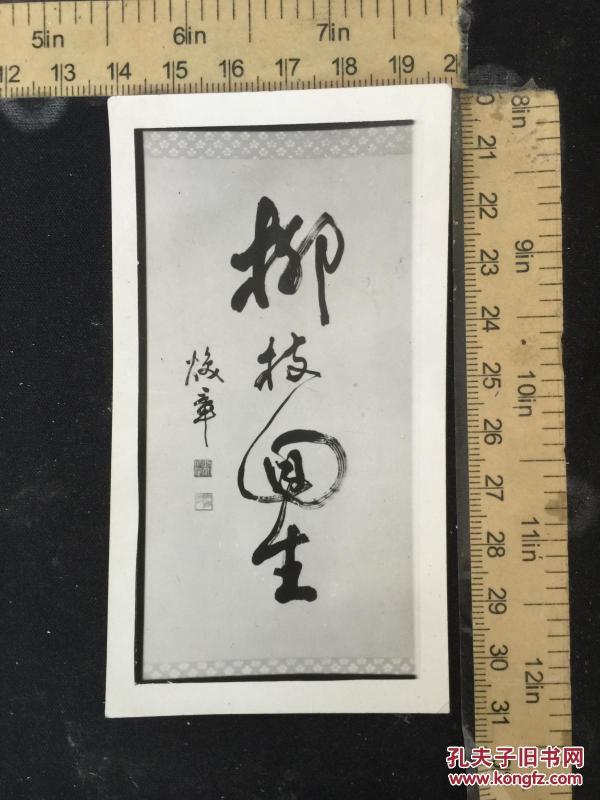 5in 6in 7in
12 13 14 15 16 17 18 19 2
柳枝回生
煥章
0 21 22 23 24 25 26 27 28 29 30 31
8in 9in 10in 11in 12in
孔夫子旧书网
www.kongfz.com